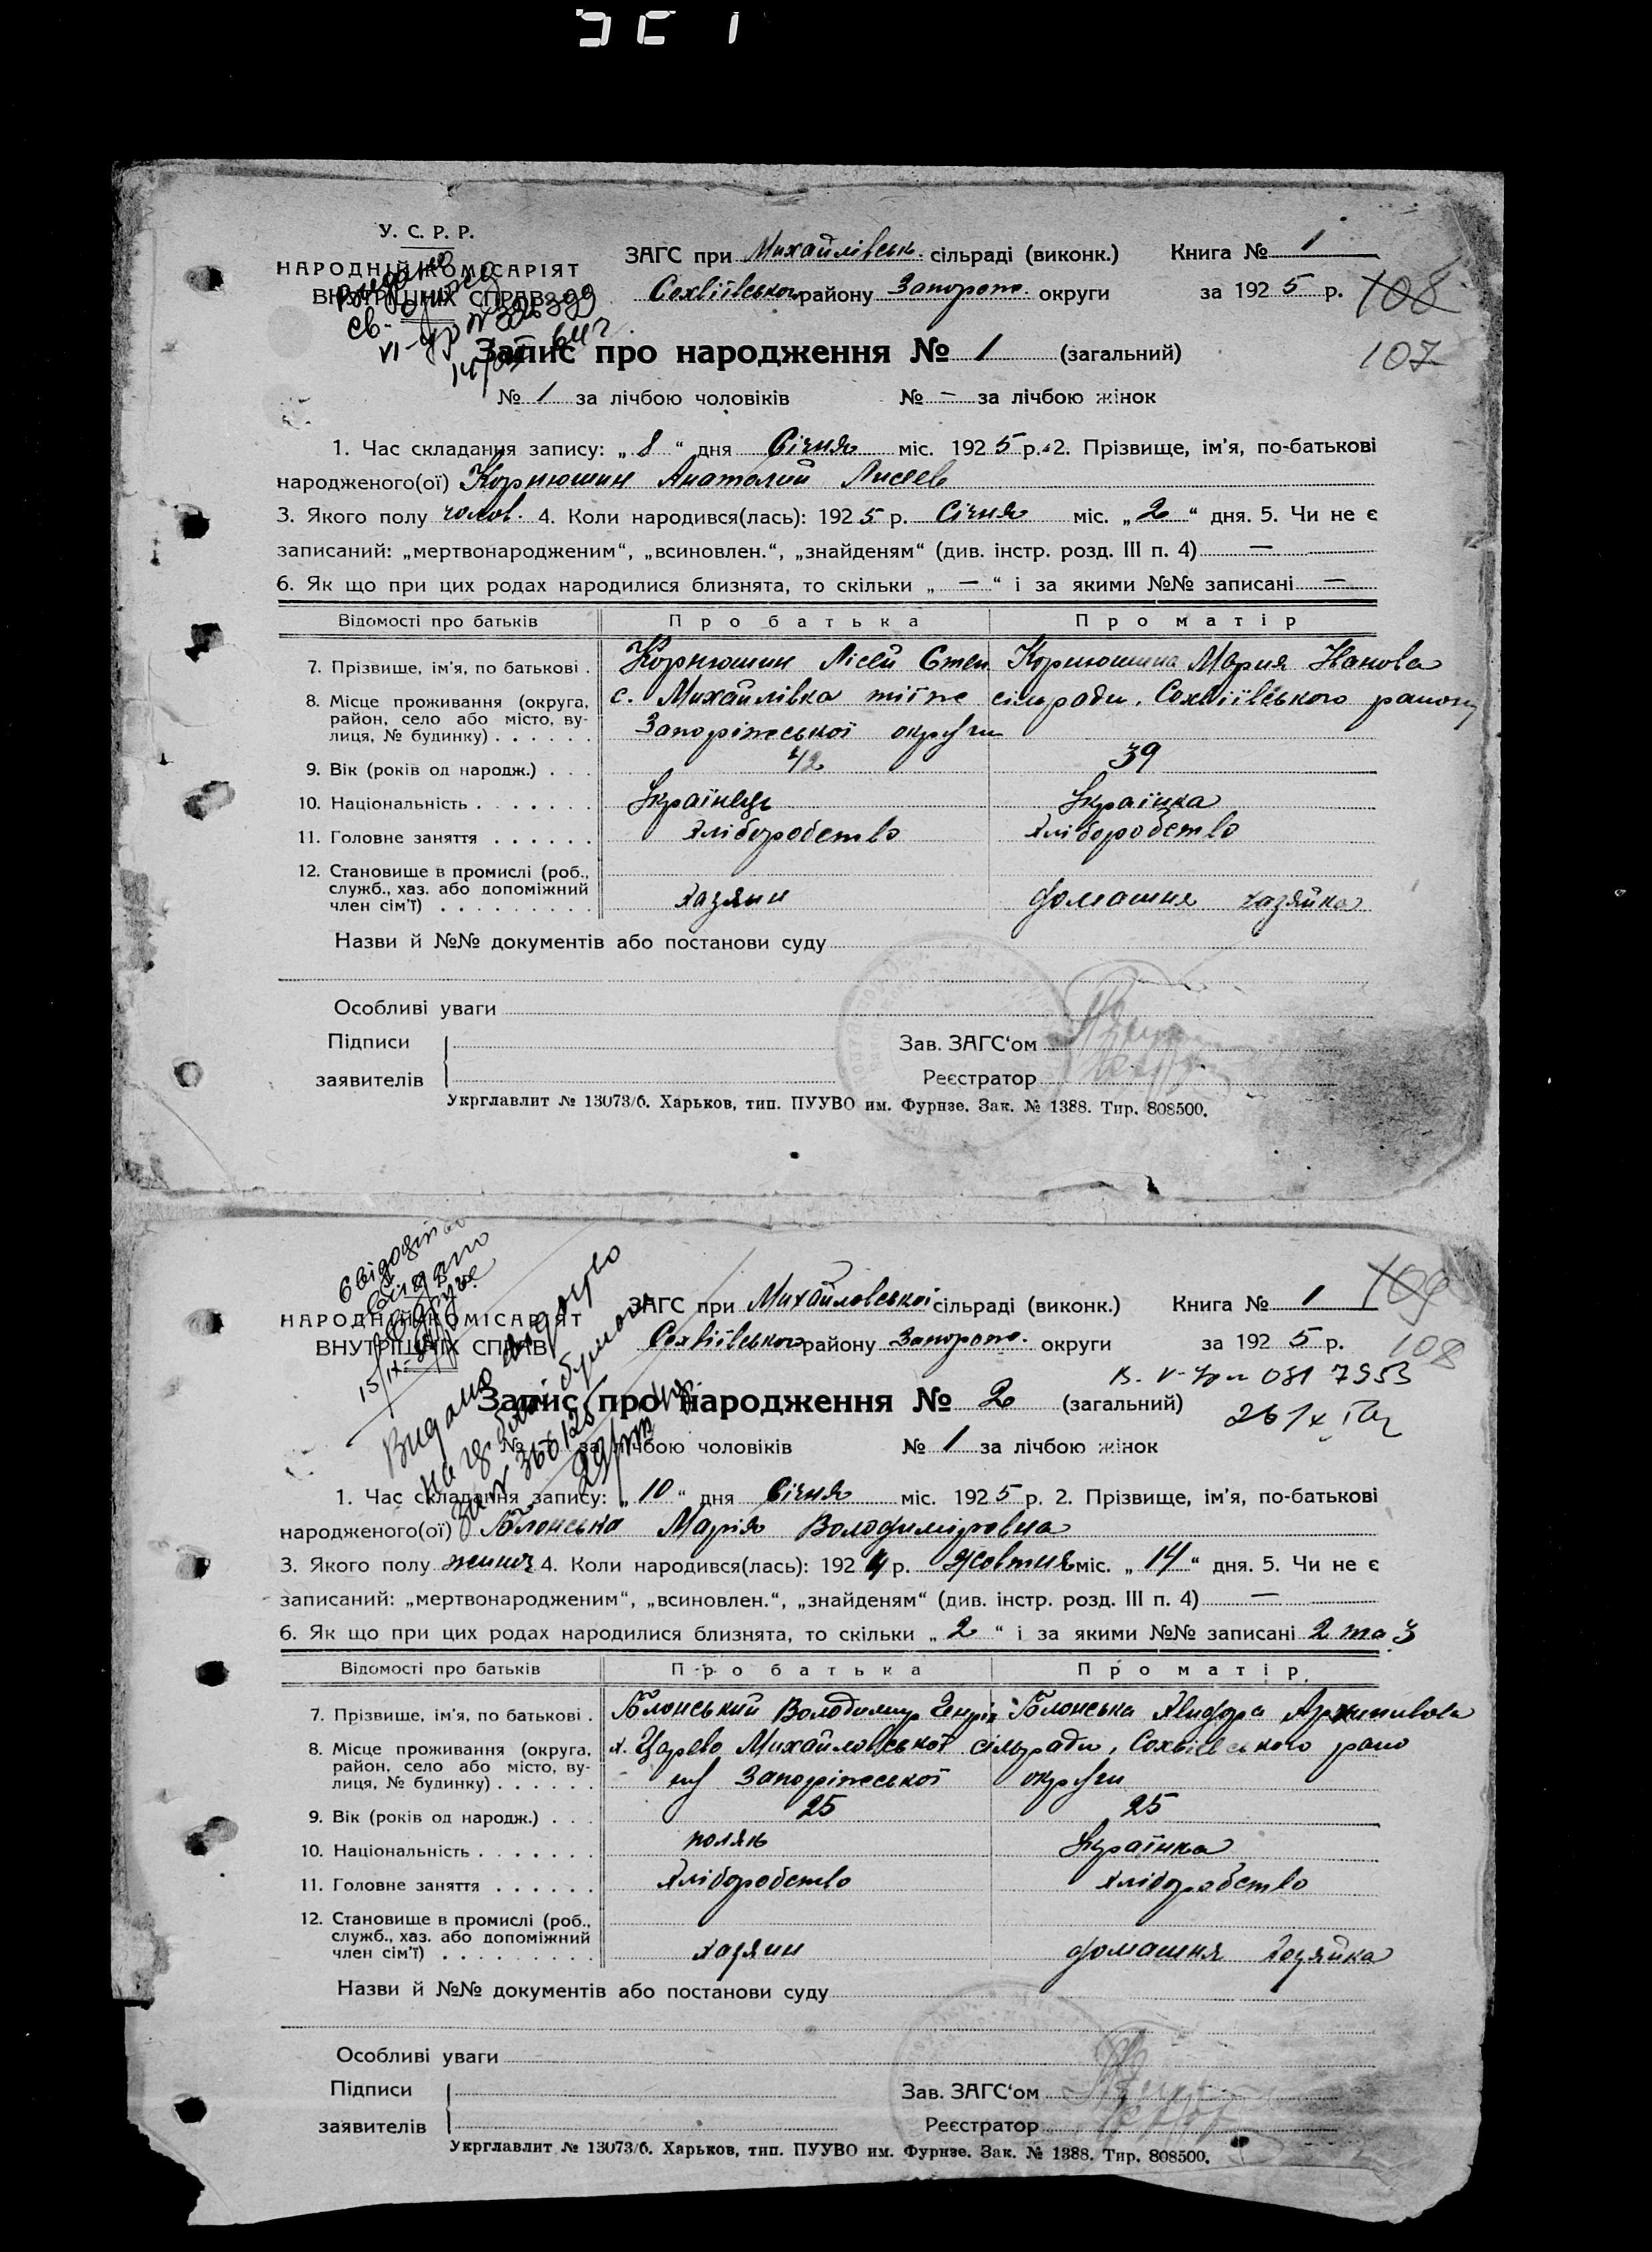 У. С. Р. Р.
НАРОДНІЙ КОМІСАРІЯТ
ВНУТРІШНІХ СПРАВ
ЗАГС при Михайлівськ. сільраді (виконк.) Книга № 1
Софіївського району Запорож. округи за 1925 р.
108
107
Запис про народження № 1 (загальний)
№ 1 за лічбою чоловіків № — за лічбою жінок
1. Час складання запису: „8“ дня Січня міс. 1925 р. 2. Прізвище, ім'я, по-батькові
народженого(ої) Корнюшин Анатолий Лисеев
3. Якого полу чолов. 4. Коли народився(лась): 1925 р. Січня міс. „2“ дня. 5. Чи не є
записаний: „мертвонародженим“, „всиновлен.“, „знайденям“ (див. інстр. розд. III п. 4) —
6. Як що при цих родах народилися близнята, то скільки „—“ і за якими №№ записані —
Відомості про батьків Про батька Про матір
7. Прізвище, ім'я, по батькові . Корнюшин Лісей Степ Корнюшина Мария Иванова
8. Місце проживання (округа, район, село або місто, вулиця, № будинку) . . . . . . с. Михайлівка тіїже сільради, Софіївського району
Запоріжської округи
9. Вік (років од народж.) . . . 42 39
10. Національність . . . . . . . Українець Українка
11. Головне заняття . . . . . . Хліборобство Хліборобство
12. Становище в промислі (роб., служб., хаз. або допоміжний член сім'ї) . . . . . . . . . Хазяин домашня хазяйка
Назви й №№ документів або постанови суду
Особливі уваги
Підписи
заявителів
Зав. ЗАГС'ом
Реєстратор
Укрглавлит № 13073/б. Харьков, тип. ПУУВО им. Фурнзе. Зак. № 1388. Тир. 808500.
НАРОДНІЙ КОМІСАРІЯТ
ВНУТРІШНІХ СПРАВ
ЗАГС при Михайловської сільраді (виконк.) Книга № 1
Софіївського району Запорож. округи за 1925 р.
109
108
Запис про народження № 2 (загальний)
№ за лічбою чоловіків № 1 за лічбою жінок
1. Час складання запису: „10“ дня Січня міс. 1925 р. 2. Прізвище, ім'я, по-батькові
народженого(ої) Блонська Марія Володиміровна
3. Якого полу жиноч 4. Коли народився(лась): 1924 р. Жовтня міс. „14“ дня. 5. Чи не є
записаний: „мертвонародженим“, „всиновлен.“, „знайденям“ (див. інстр. розд. III п. 4) —
6. Як що при цих родах народилися близнята, то скільки „2“ і за якими №№ записані 2 та 3
Відомості про батьків Про батька Про матір
7. Прізвище, ім'я, по батькові . Блонський Володимир Генрі Блонська
8. Місце проживання (округа, район, село або місто, вулиця, № будинку) . . . . . . х. Царево Михайловської сільради, Софіївського райо
ну Запоріжської округи
9. Вік (років од народж.) . . . 25 25
10. Національність . . . . . . . поляк Українка
11. Головне заняття . . . . . . Хліборобство Хліборобство
12. Становище в промислі (роб., служб., хаз. або допоміжний член сім'ї) . . . . . . . . . Хазяин домашня хозяйка
Назви й №№ документів або постанови суду
Особливі уваги
Підписи
заявителів
Зав. ЗАГС'ом
Реєстратор
Укрглавлит № 13073/б. Харьков, тип. ПУУВО им. Фурнзе. Зак. № 1388. Тир. 808500.